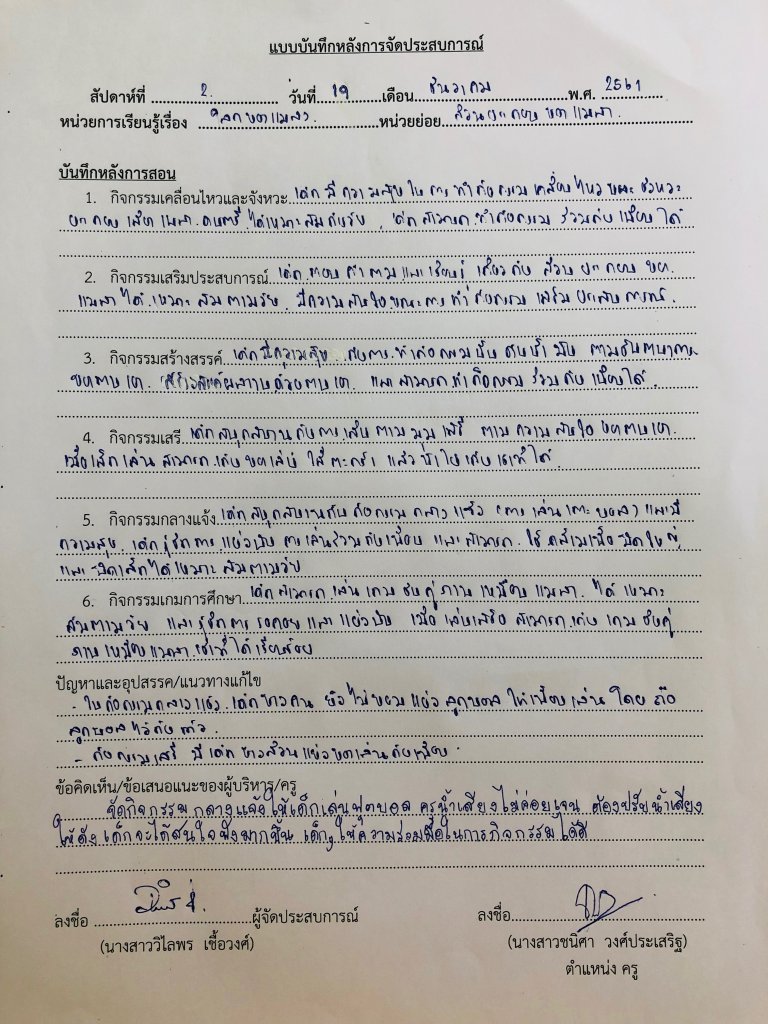 แบบบันทึกหลังการจัดประสบการณ์
สัปดาห์ที่ 2 วันที่ 19 เดือน ธันวาคม พ.ศ. 2561
หน่วยการเรียนรู้เรื่อง โลกของแมลง หน่วยย่อย ส่วนประกอบของแมลง
บันทึกหลังการสอน
1. กิจกรรมเคลื่อนไหวและจังหวะ เด็กมีความสุขในการทำกิจกรรมเคลื่อนไหวและจังหวะ
ประกอบเสียงเพลง ดนตรี ได้เหมาะสมกับวัย เด็กสามารถทำกิจกรรมร่วมกับเพื่อนได้
2. กิจกรรมเสริมประสบการณ์ เด็กตอบคำถามและเรียนรู้เกี่ยวกับส่วนประกอบของ
แมลงได้เหมาะสมตามวัย มีความสนใจขณะการทำกิจกรรมเสริมประสบการณ์
3. กิจกรรมสร้างสรรค์ เด็กมีความสุขกับการทำกิจกรรมปั้นดินน้ำมันตามจินตนาการ
ของตนเอง สร้างสรรค์ผลงานด้วยตนเอง และสามารถทำกิจกรรมร่วมกับเพื่อนได้
4. กิจกรรมเสรี เด็กสนุกสนานกับการเล่นตามมุมเสรี ตามความสนใจของตนเอง
เมื่อเลิกเล่นสามารถเก็บของเล่นใส่ตะกร้าแล้วนำไปเก็บเข้าที่ได้
5. กิจกรรมกลางแจ้ง เด็กสนุกสนานกับกิจกรรมกลางแจ้ง (การเล่นเตะบอล) และมี
ความสุข เด็กรู้จักการแบ่งปัน การเล่นร่วมกับเพื่อน และสามารถใช้กล้ามเนื้อมัดใหญ่
และมัดเล็กได้เหมาะสมตามวัย
6. กิจกรรมเกมการศึกษา เด็กสามารถเล่นเกมจับคู่ภาพเหมือนแมลงได้เหมาะ
สมตามวัย และรู้จักการรอคอยและแบ่งปัน เมื่อเล่นเสร็จสามารถเก็บเกมจับคู่
ภาพเหมือนแมลงเข้าที่ได้เรียบร้อย
ปัญหาและอุปสรรค/แนวทางแก้ไข
- ในกิจกรรมกลางแจ้ง เด็กบางคนยังไม่ยอมแบ่งลูกบอลให้เพื่อนเล่น โดยถือ
ลูกบอลไว้กับตัว
- กิจกรรมเสรี มีเด็กบางส่วนแย่งของเล่นกับเพื่อน
ข้อคิดเห็น/ข้อเสนอแนะของผู้บริหาร/ครู
จัดกิจกรรมกลางแจ้งให้เด็กเล่นฟุตบอล ครูน้ำเสียงไม่ค่อยเจน ต้องปรับน้ำเสียง
ให้ดัง เด็กจะได้สนใจฟังมากขึ้น เด็กๆ ให้ความร่วมมือในการกิจกรรมได้ดี
ลงชื่อ ผู้จัดประสบการณ์ ลงชื่อ
(นางสาววิไลพร เชื้อวงศ์) (นางสาวชนิศา วงศ์ประเสริฐ)
ตำแหน่ง ครู